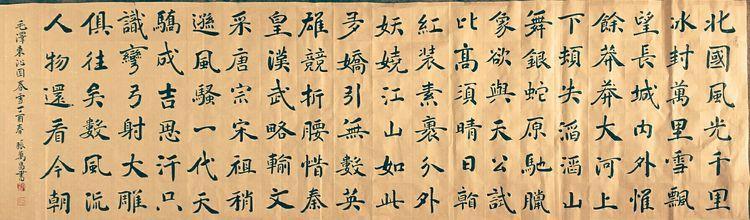 北國風光千里
冰封萬里雪飄
望長城內外惟
餘莽莽大河上
下頓失滔滔山
舞銀蛇原馳臘
象欲與天公試
比髙須晴日
紅装素裹分外
妖嬈江山如此
多嬌引無數英
雄競折腰惜秦
皇漢武略輸文
采唐宗宋祖稍
遜風騷一代天
驕成吉思汗只
識彎弓射大雕
俱往矣數風流
人物還看今朝
毛澤東沁園春雪丁酉春 萬昌書